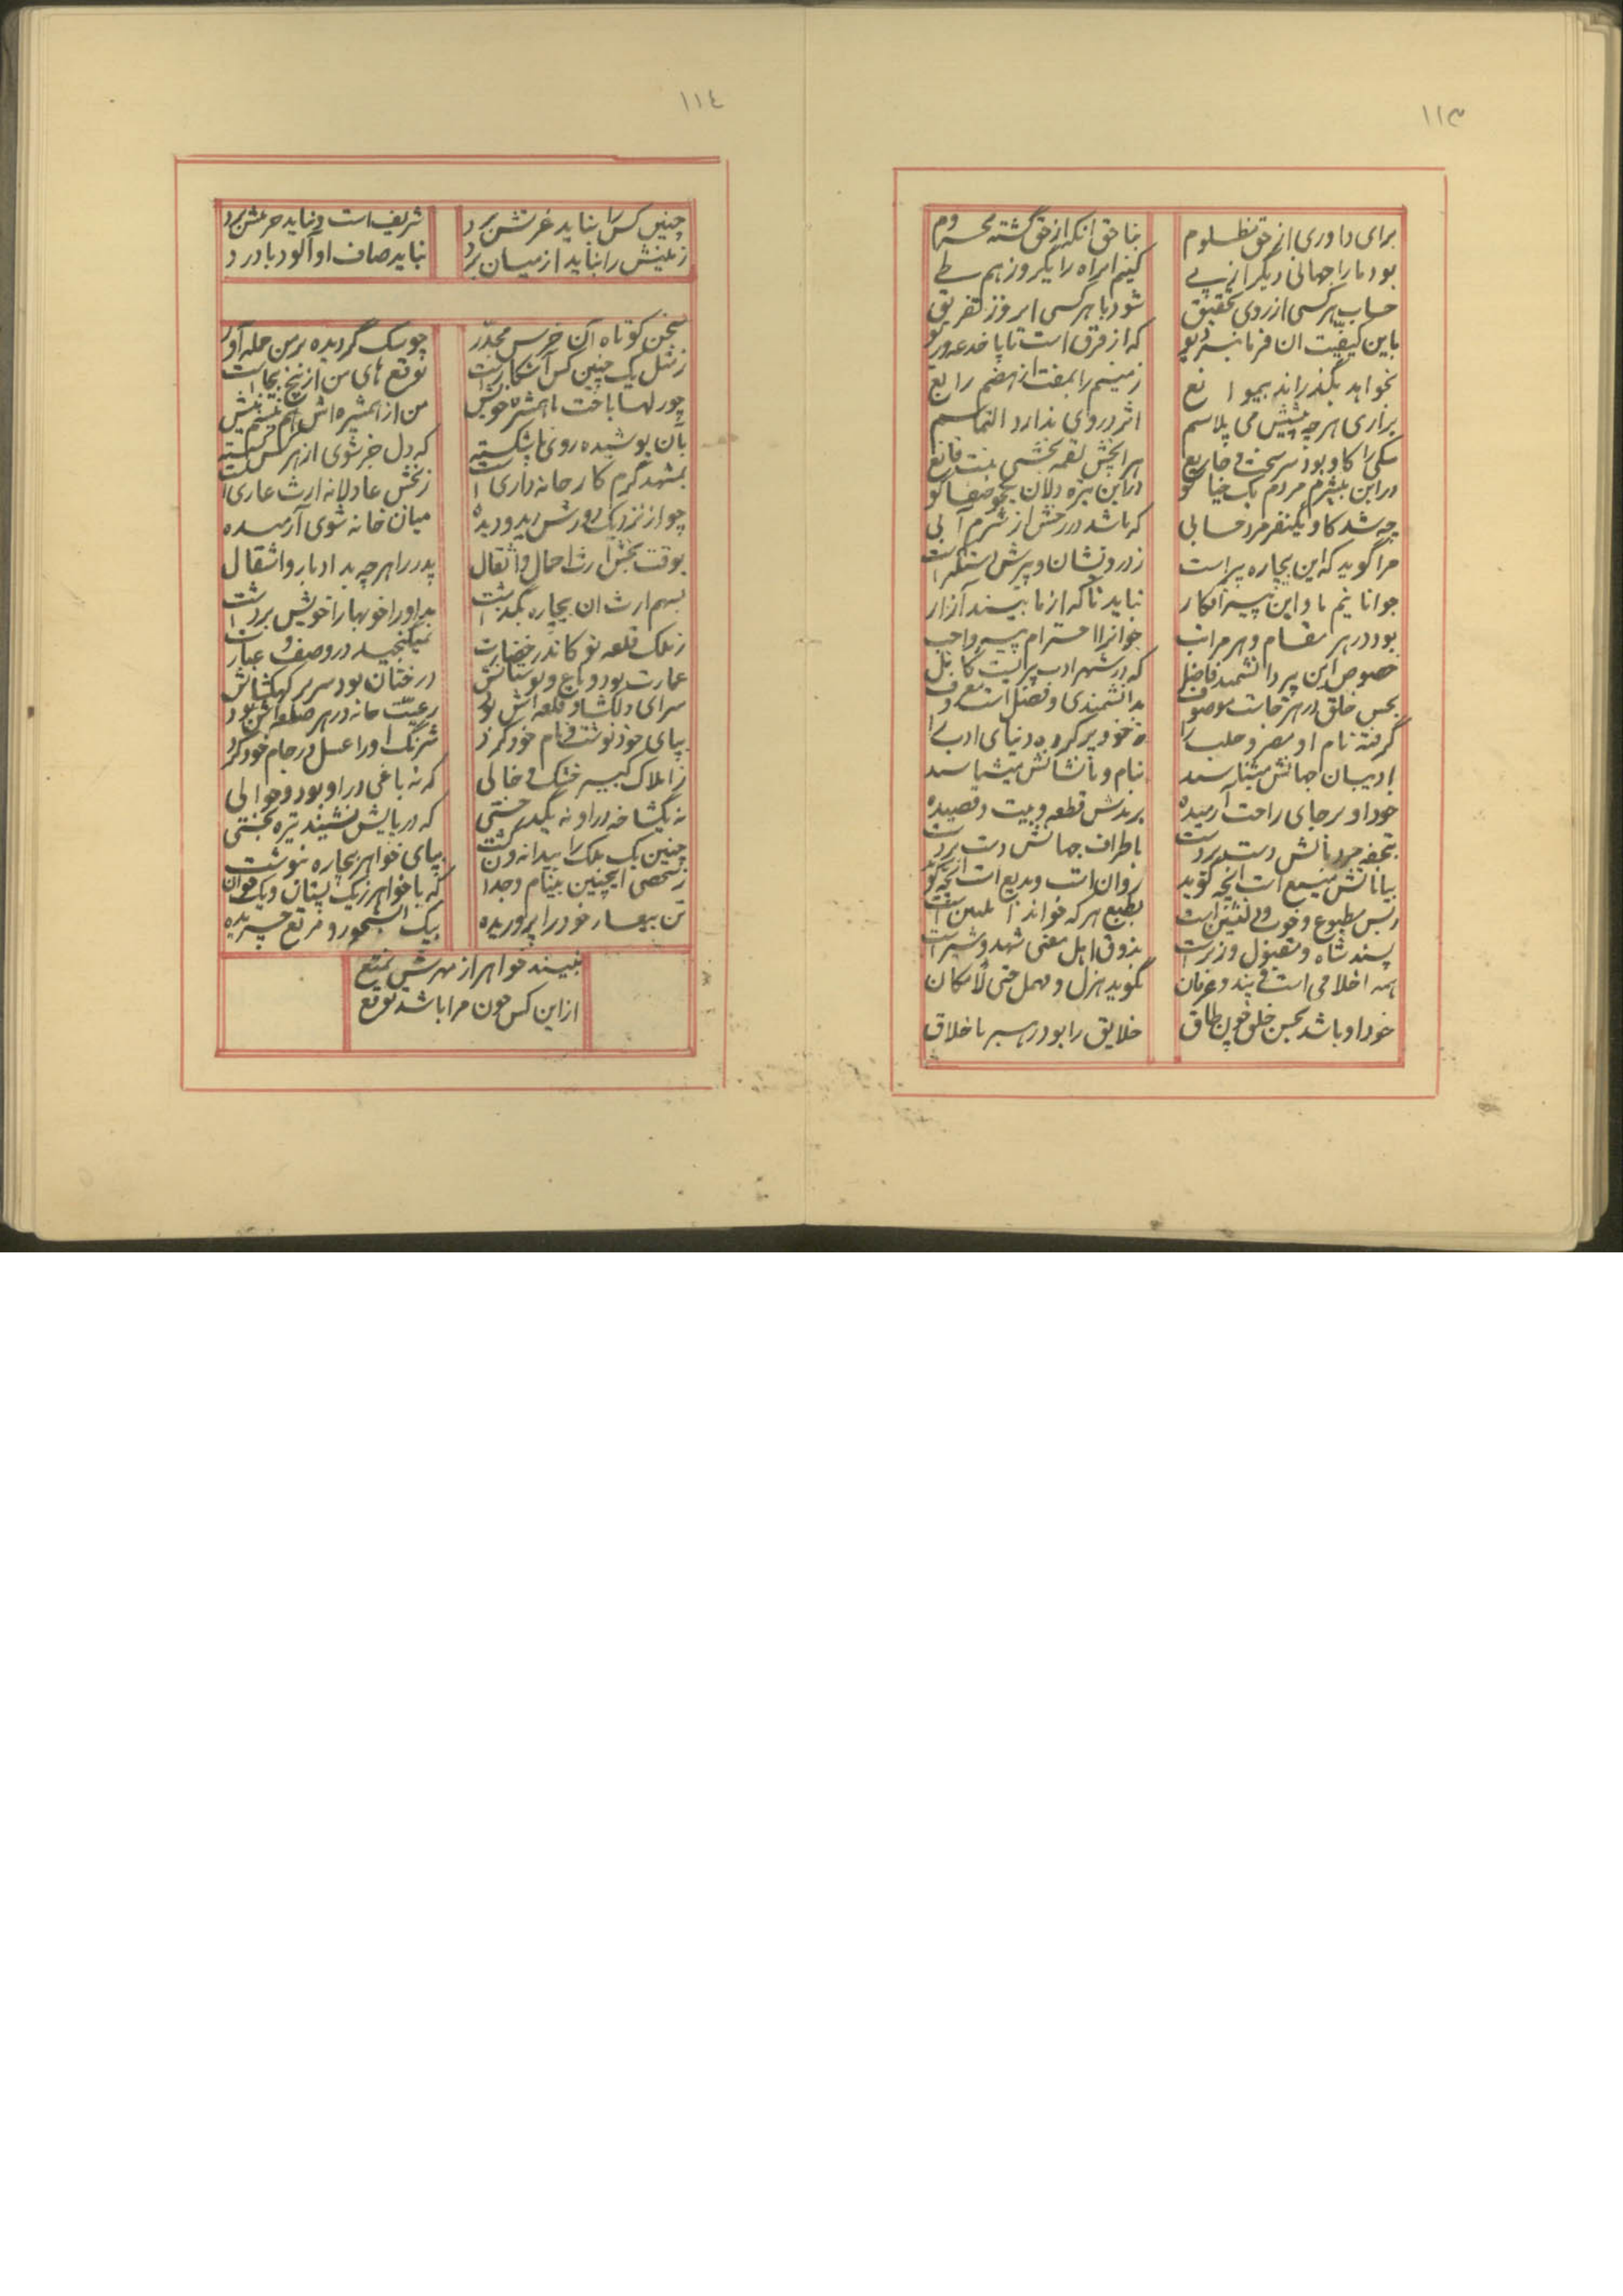 ١١٣
برای داوری از حق مظلوم
بناحق آنکه از حق گشته محروم
بود ما را جهانی دیگر از پی
کنیم این راه را یکروز هم طی
حساب هر کسی از روی تحقیق
شود با هر کسی امروز تفریق
باین کیفیت آن فرمانبر دیو
که از فرق است تا پا خدعه و ریو
نخواهد بگذراند بی موانع
زمینم را بمفت از هضم رابع
بزاری هر چه پیشش می پلاسم
اثر در وی ندارد التماسم
سگی را کاو بود سرسخت و جازع
هر آنچش لقمه بخشی نیست قانع
در این بیشرم مردم یک حیا کو
در این تیره دلان یکجو صفا کو
چه شد کاو یکنفر مرد حسابی
که باشد در رخش از شرم آبی
مرا گوید که این بیچاره پیر است
جوانانیم ما و این پیر افکار
نباید تا که از ما بیند آزار
بود در هر مقام و هر مراتب
جوانرا احترام پیر واجب
خصوص این پیر دانشمند فاضل
که در شهر ادب پیریست کامل
بحسن خلق در هر جاست موصوف
بدانشمندی و فضل است معروف
گرفته نام او مصر و حلب را
ادیبان جهانش میشناسند
بنام و با نشانش میشناسند
خود او بر جای راحت آرمیده
برندش قطعه و بیت و قصیده
باطراف جهانش دست بر دست
روان است و بدیع است آنچه گوید
پسند شاه و مقبول وزیر است
بذوق اهل معنی شهد و شیر است
همه اخلاقی است و پند و عرفان
نگوید هزل و مهمل حتی الامکان
خود او باشد بحسن خلق چون طاق
خلایق را بود رهبر باخلاق
١١٤
چنین کس را نباید عزتش برد
شریف است و نباید حرمتش برد
زمینش را نباید از میان برد
نباید صاف او آلود با درد
سخن کوتاه آن خرس مجدر
چو سگ گردیده بر من حمله آور
ز مثل یک چنین کس آشکار است
توقع های من از بیخ بیجاست
چو رلها باخت با همشیره خویش
من از همشیره اش هم نیستم بیش
بآن پوشیده روی پا شکسته
بمشهد گرم کار خانه داری است
ز بخش عادلانه ارث عاری است
چو از نزدیک و دورش دید و دیده
میان خانه شوی آرمیده
بوقت بخش ارث احمال و اثقال
پدر را هر چه بد ادبار و اشقال
بسهم ارث آن بیچاره بگذاشت
ز ملک قلعه نو کاندر خضارت
نمیگنجید در وصف و عبارت
عمارت بود و باغ و بوستانش
درختان بود سر بر کهکشانش
سرای دلگشا و قلعه اش بود
بپای خود نوشت و نام خود کرد
شرنگ او را عسل در جام خود کرد
ز املاک کبیر خشک و خالی
که نه باغی در او بود و حوالی
نه یکشاخه در او نه یکدرختی
که در پایش نشیند تیره بختی
چنین یک ملک را بیدانه و کشت
بپای خواهر بیچاره بنوشت
ز شخصی اینچنین بینام و جدان
که با خواهر ز یک پستان و یک خوان
تن بیعار خود را پروریده
بیک آبشخور و مرتع چریده
نبیند خواهر از مهرش تمتع
از این کس چون مرا باشد توقع